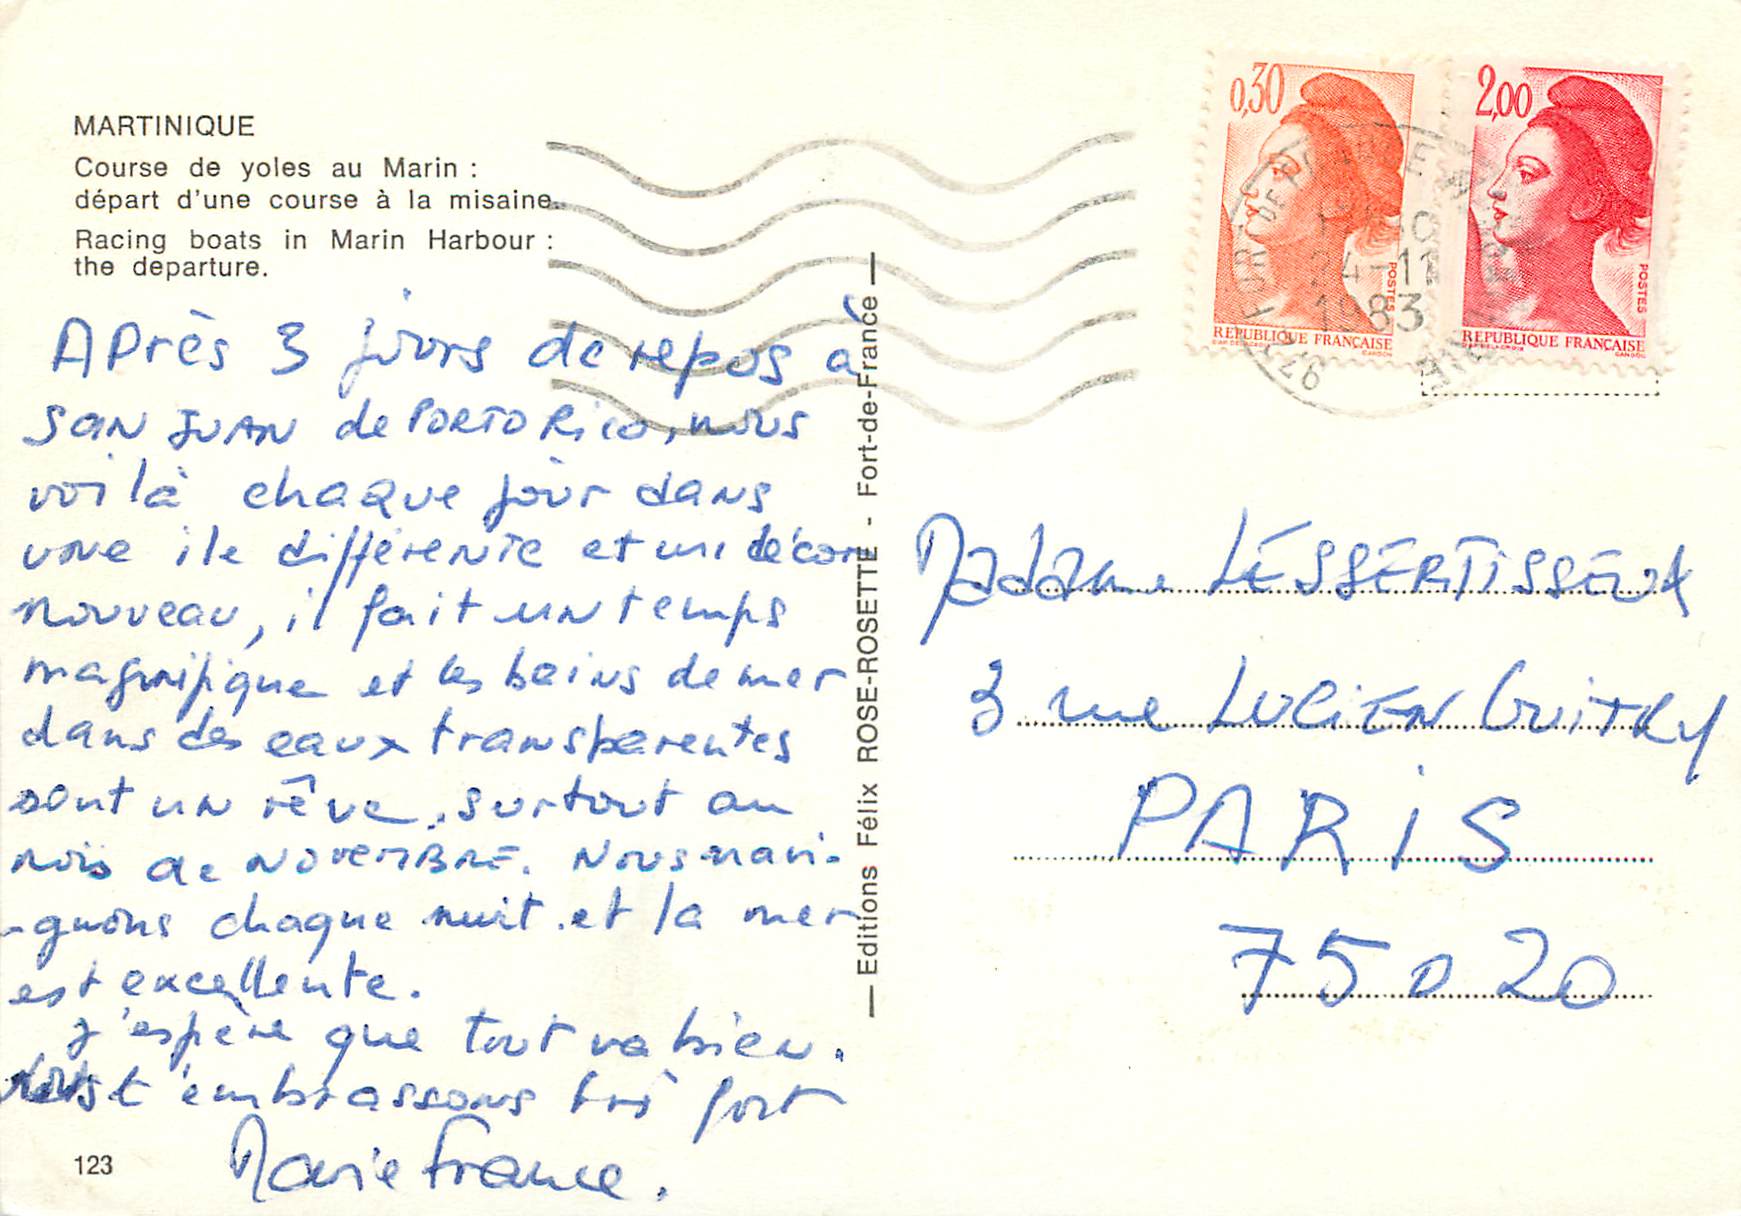 MARTINIQUE
Course de yoles au Marin :
départ d'une course à la misaine.
Racing boats in Marin Harbour :
the departure.
Après 3 jours de repos à
San Juan de Porto Rico, nous
voilà chaque jour dans
une ile différente et un décor
nouveau, il fait un temps
magnifique et les bains de mer
dans des eaux transparentes
sont un rêve, surtout au
mois de NOVEMBRE. Nous navi-
-guons chaque nuit et la mer
est excellente.
J'espère que tout va bien.
Nous t'embrassons très fort
Marie France.
123
Editions Félix ROSE-ROSETTE - Fort-de-France
0,30
POSTES
REPUBLIQUE FRANÇAISE
2,00
POSTES
REPUBLIQUE FRANÇAISE
24-11
1983
Madame LESSERTISSEUX
3 rue LUCIEN GUITRY
PARIS
75020